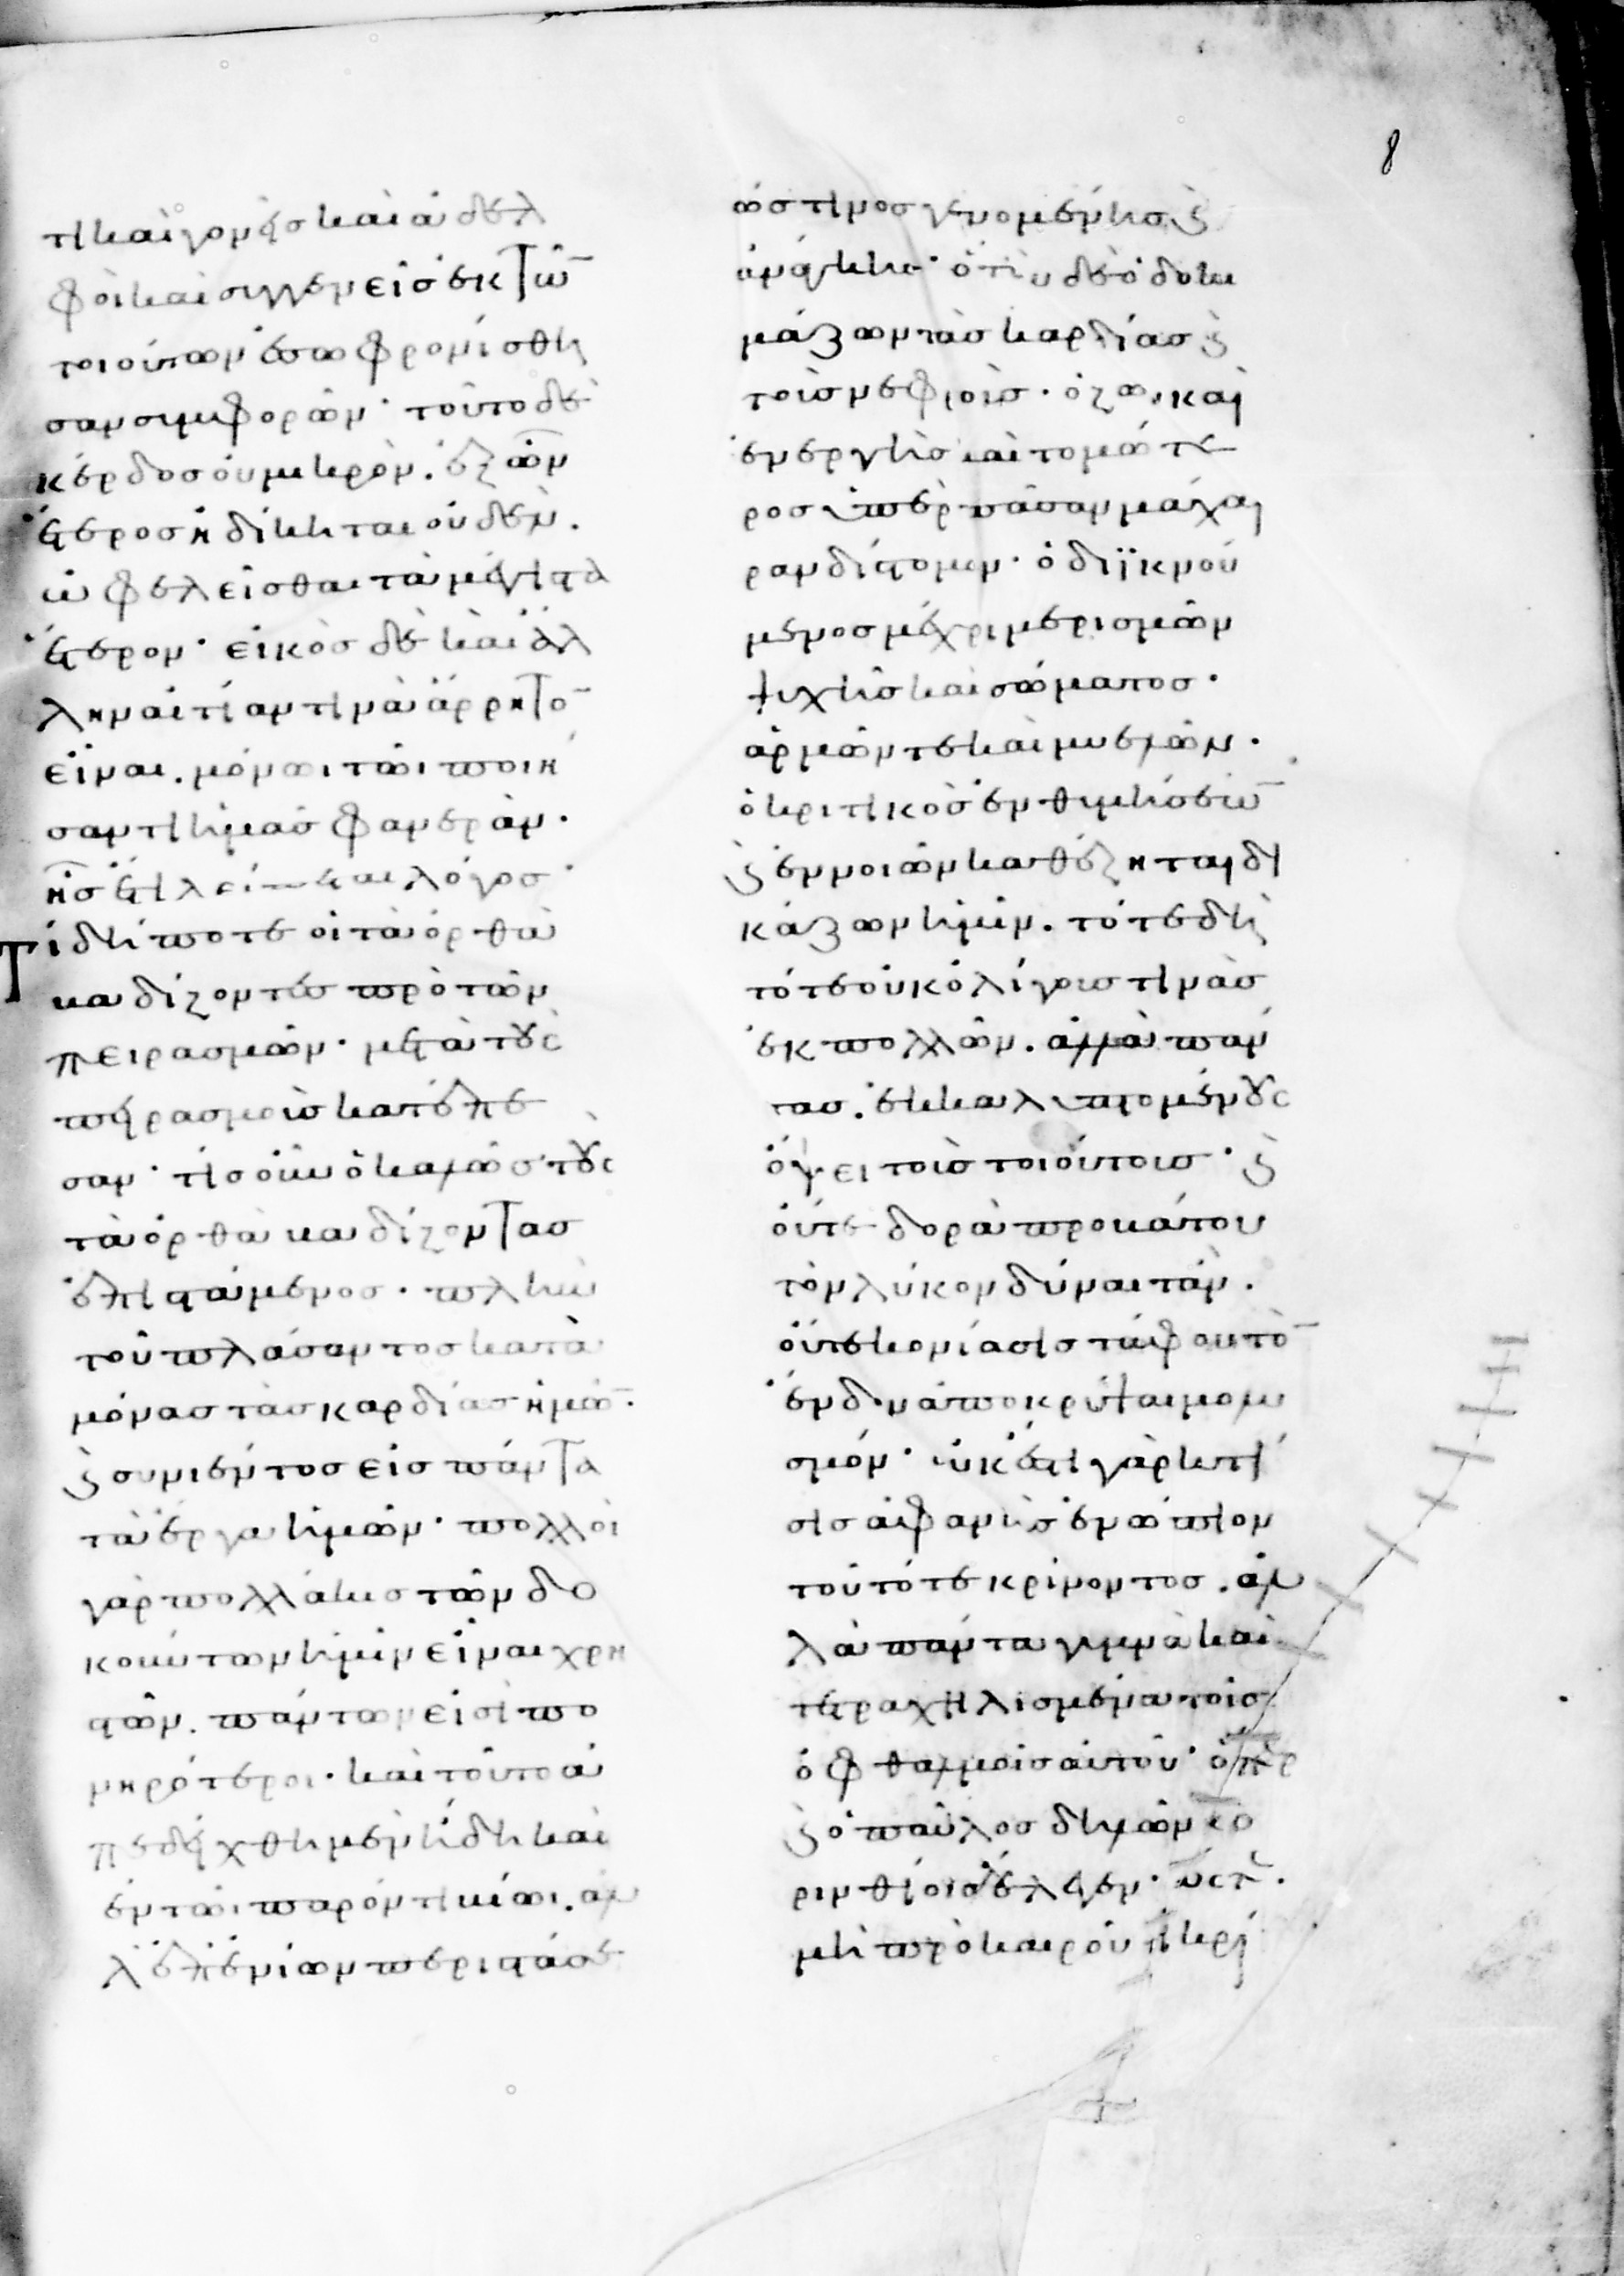 8
τι καὶ γονεῖσ καὶ ἀδελ
φοὶ καὶ συγγενεῖσ ἐκ τῶ̅
τοιούτων ἐσωφρονίσθη
σαν συμφορῶν· τοῦτο δὲ
κέρδοσ οὐ μικρὸν. ἐξ ὧν
ἕτεροσ ἠδίκηται οὐδὲν.
ὠφελεῖσθαι τὰ μέγιστα
ἕτερον· εἰκὸσ δὲ καὶ ἄλ
λην αἰτίαν τινὰ ἄρρητο̅
εἶναι. μόνωι τῶι ποιή
σαντι ἡμᾶσ φανερὰν.
ἧσ ἐπιλείπεται λόγοσ·
Τί δήποτε οἱ τὰ ὀρθὰ
βαδίζοντεσ πρὸ τῶν
πειρασμῶν· μετὰ τοὺσ
πειρασμοὺσ κατέπε
σαν· τίσ οὖν ὁ καλῶσ τοὺσ
τὰ ὀρθὰ βαδίζοντασ
ἐπιστάμενοσ· πλὴν
τοῦ πλάσαντοσ κατὰ
μόνασ τὰσ καρδίασ ἡμῶ̅.
ϗ συνιέντοσ εἰσ πάντα
τὰ ἔργα ἡμῶν· πολλοὶ
γὰρ πολλάκισ τῶν δο
κούντων ἡμῖν εἶναι χρη
στῶν. πάντων εἰσὶ πο
νηρότεροι· καὶ τοῦτο ἀ
πεδείχθη μὲν ἤδη καὶ
ἐν τῶι παρόντι βίωι. ἀλ
λ' ἐπ' ἐνίων περιστάσε
ώσ τινοσ γενομένησ ϗ
ἀνάγκησ· ὅτι ὁ δὲ ὁ δοκι
μάζων τὰσ καρδίασ ϗ
τοὺσ νεφροὺσ· ὁ ζῶν καὶ
ἐνεργὴσ καὶ τομώτε
ροσ ὑπὲρ πᾶσαν μάχαι
ραν δίστομον· ὁ διϊκνού
μενοσ μέχρι μερισμῶν
ψυχῆσ καὶ σώματοσ·
ἁρμῶν τε καὶ μυελῶν.
ὁ κριτικὸσ ἐνθυμήσεω̅
ϗ ἐννοιῶν καθέζηται δι
κάζων ἡμῖν. τότε δὴ
τότε οὐκ ὀλίγουσ τινὰσ
ἐκ πολλῶν. ἀλλὰ πάν
τασ. ἐκκαλυπτομένουσ
ὄψει τοὺσ τοιούτουσ· ϗ
οὔτε δορὰ προβάτου
τὸν λύκον δύναιτ' ἂν.
οὔτε κονίασισ τάφου τὸ̅
ἔνδον ἀποκρύψαι μολυ
σμόν· οὐκ ἔστι γὰρ κτί
σισ ἀφανὴσ ἐνώπιον
τοῦ τότε κρίνοντοσ. ἀλ
λὰ πάντα γυμνὰ καὶ
τετραχηλισμένα τοῖσ
ὀφθαλμοῖσ αὐτοῦ· ὅπερ
ϗ ὁ παῦλοσ δηλῶν κο
ρινθίοισ ἔλεγεν· ὥστε.
μὴ πρὸ καιροῦ τι κρί